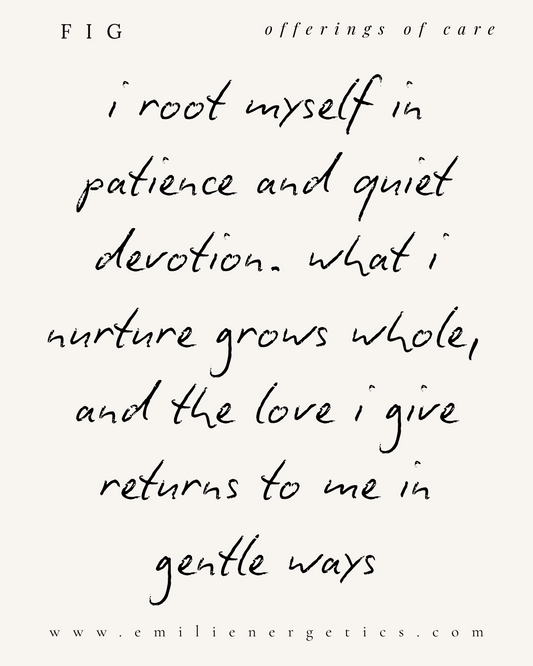 FIG
offerings of care
i root myself in
patience and quiet
devotion. what i
nurture grows whole,
and the love i give
returns to me in
gentle ways
www.emilienergetics.com